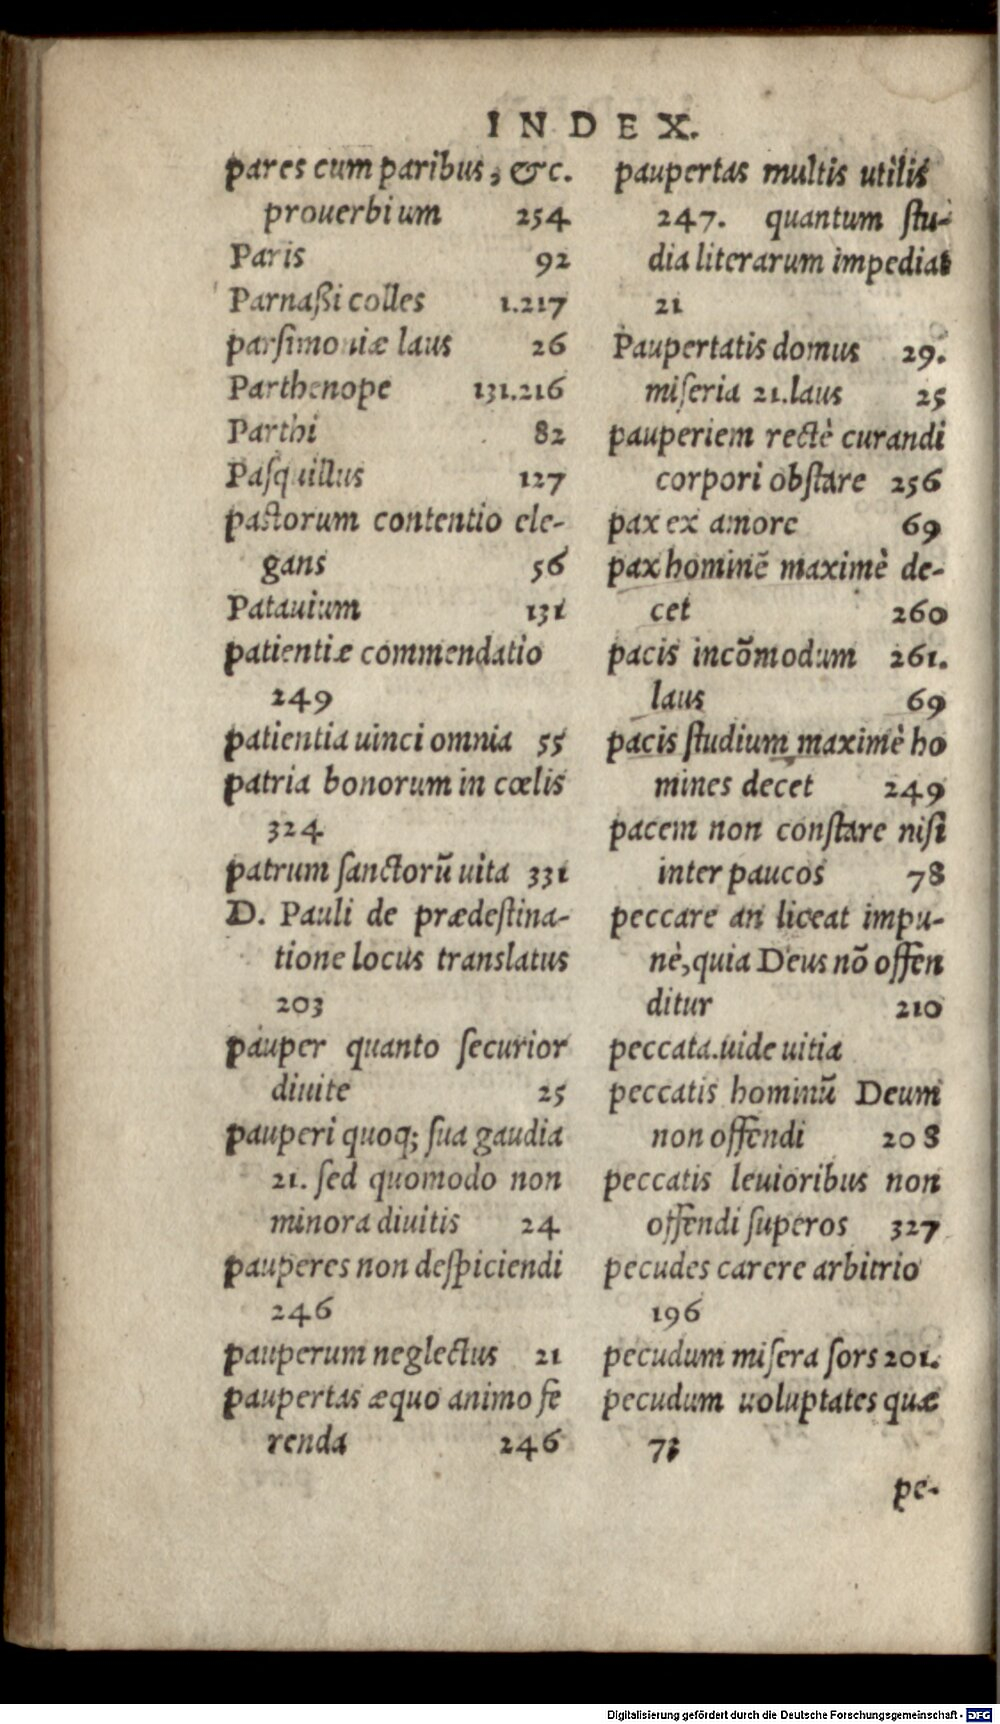 INDEX.
pares cum paribus, &c.
prouerbium 254
Paris 92
Parnaßi colles 1.217
parſimoniæ laus 26
Parthenope 131.216
Parthi 82
Paſquillus 127
pastorum contentio ele-
gans 56
Patauium 131
patientiæ commendatio
249
patientia uinci omnia 55
patria bonorum in cœlis
324
patrum ſanctorū uita 331
D. Pauli de prædeſtina-
tione locus translatus
203
pauper quanto ſecurior
diuite 25
pauperi quoq; ſua gaudia
21. ſed quomodo non
minora diuitis 24
pauperes non deſpiciendi
246
pauperum neglectus 21
paupertas æquo animo fe
renda 246
paupertas multis utilis
247. quantum ſtu-
dia literarum impediat
21
Paupertatis domus 29.
miſeria 21.laus 25
pauperiem rectè curandi
corpori obſtare 256
pax ex amore 69
pax hominē maximè de-
cet 260
pacis incōmodum 261.
laus 69
pacis ſtudium maximè ho
mines decet 249
pacem non conſtare niſi
inter paucos 78
peccare an liceat impu-
nè, quia Deus nō offen
ditur 210
peccata.uide uitia
peccatis hominū Deum
non offendi 208
peccatis leuioribus non
offendi ſuperos 327
pecudes carere arbitrio
196
pecudum miſera ſors 201.
pecudum uoluptates quæ
pe-
Digitalisierung gefördert durch die Deutsche Forschungsgemeinschaft - DFG